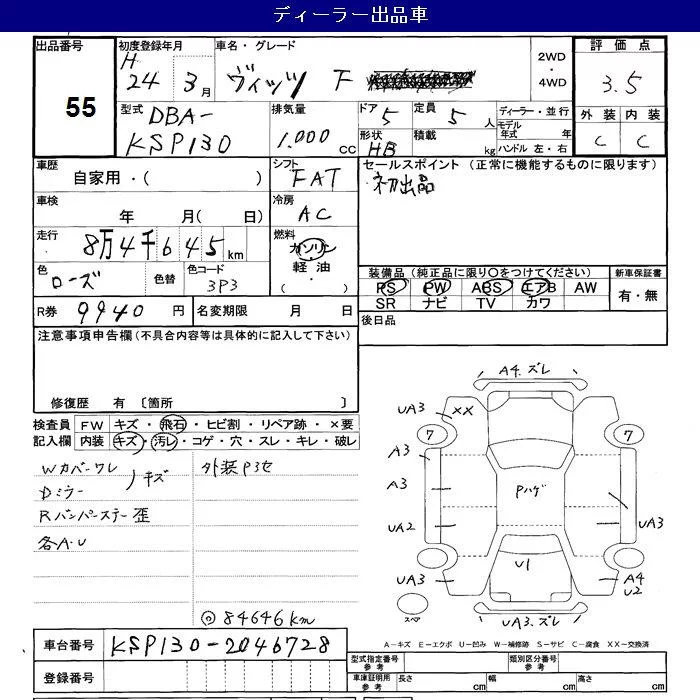 ディーラー出品車
出品番号 55
初度登録年月 H 24 3月
車名・グレード ヴィッツ F
2WD・4WD
評価点 3.5
外装 C 内装 C
型式 DBA-KSP130
排気量 1.000 cc
ドア 5
定員 5人
形状 HB
積載 kg
ディーラー・並行
モデル年式 年
ハンドル 左・右
車歴 自家用・( )
シフト FAT
セールスポイント (正常に機能するものに限ります)
初出品
車検 年 月( 日)
冷房 AC
走行 8万4千645km
燃料 ガソリン・軽油・( )
色 ローズ 色替 色コード 3P3
装備品 (純正品に限り○をつけてください)
PS PW ABS エアB AW
SR ナビ TV カワ
新車保証書 有・無
R券 9940円 名変期限 月 日
後日品
注意事項申告欄(不具合内容等は具体的に記入して下さい)
修復歴 有〔箇所 〕
検査員記入欄
FW キズ・飛石・ヒビ割・リペア跡・×要
内装 キズ・汚レ・コゲ・穴・スレ・キレ・破レ
Wカバーワレ
Dミラー キズ
Rバンパーステー歪
各A・U
外装P3セ
◎84646km
A4.ズレ
UA3 XX
7 7
A3
A3
Pハゲ
UA2 UA3
U1
UA3 A4 U2
スペア
UA3.ズレ
A−キズ E−エクボ U−凹み W−補修跡 S−サビ C−腐食 XX−交換済
車台番号 KSP130-2046728
登録番号
型式指定番号 参考 類別区分番号 参考
車庫証明用 参考 長さ cm 幅 cm 高さ cm